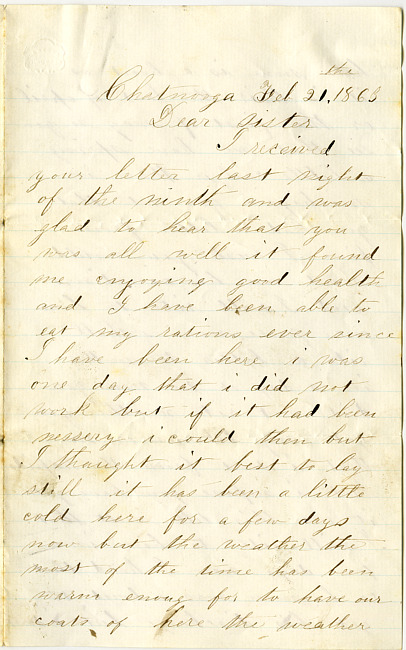 the
Chatnooga Feb 21, 1863
Dear Sister
I received
your letter last night
of the ninth and was
glad to hear that you
was all well it found
me enjoying good health
and I have been able to
eat my rations ever since
I have been here i was
one day that i did not
work but if it had ben
nessery i could then but
I thought it best to lay
still it has been a little
cold here for a few days
now but the weather the
most of the time has been
warm enoug for to have our
coats of here the weather